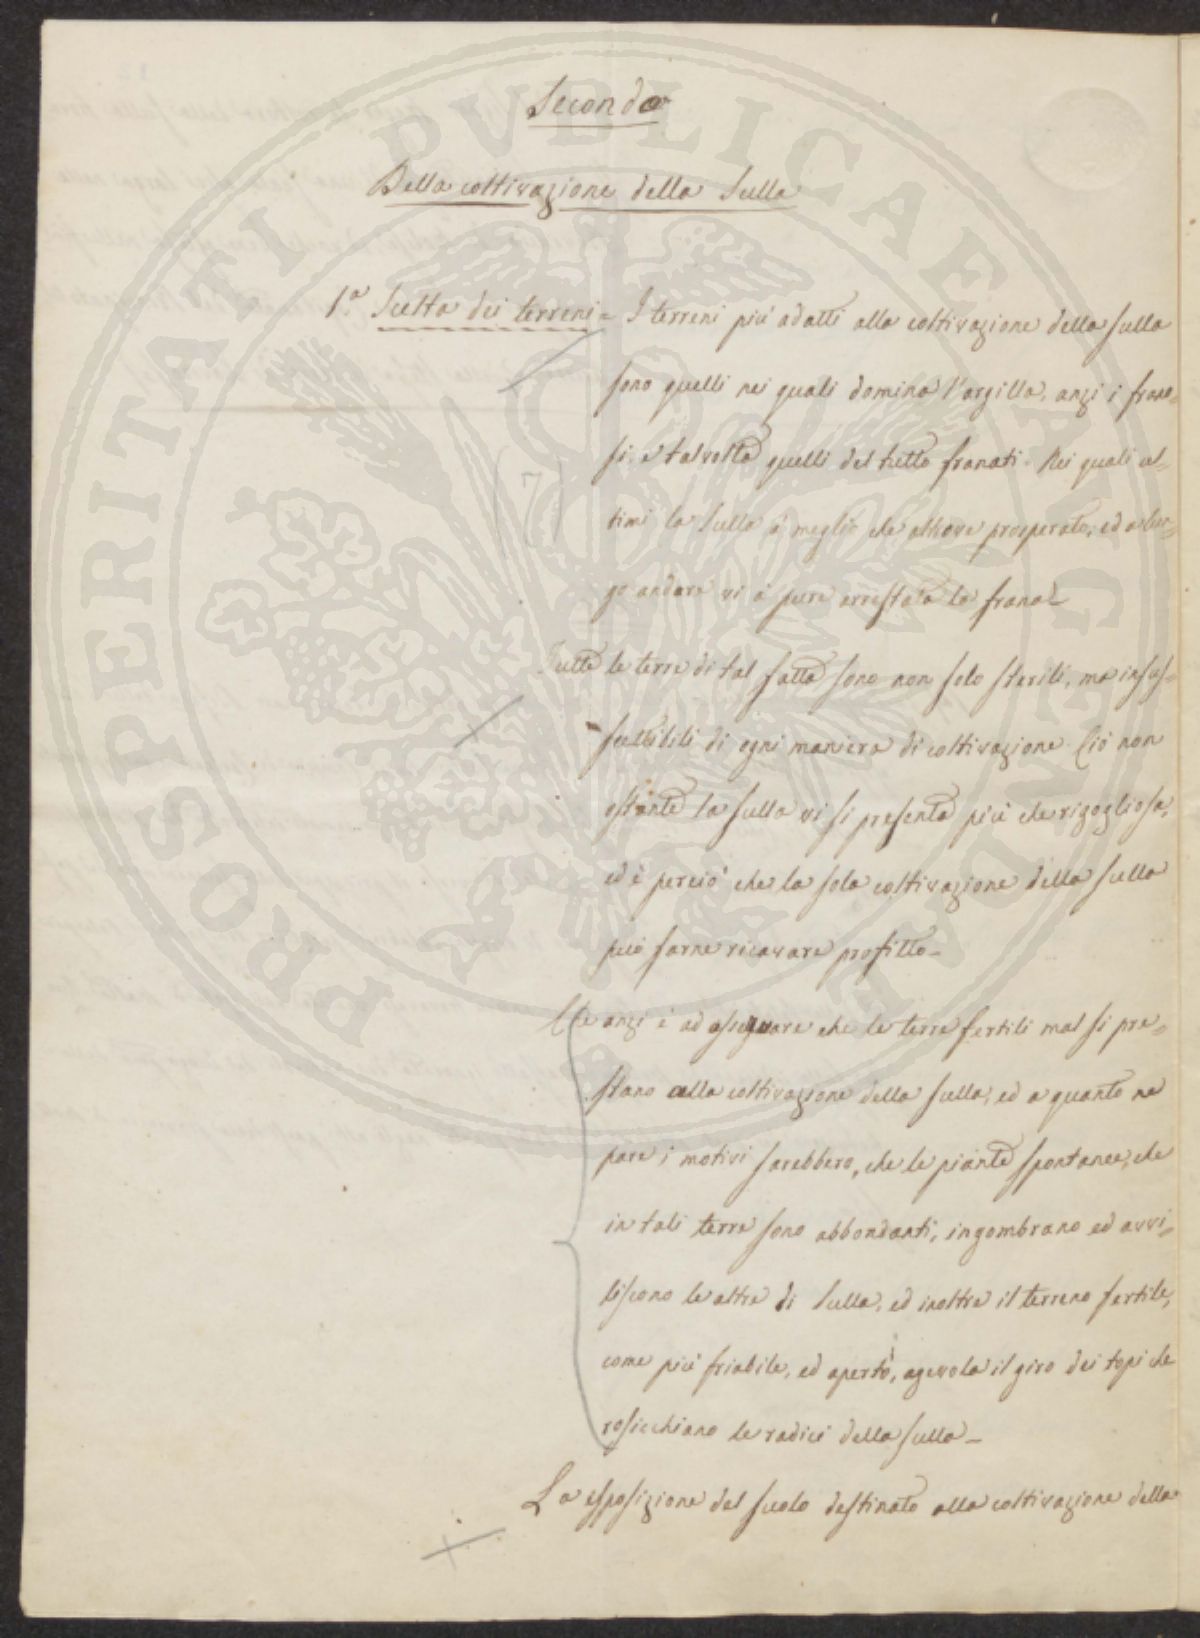 Secondo
Della coltivazione della Sulla
1.a Scelta dei terreni = I terreni più adatti alla coltivazione della sulla
sono quelli nei quali domina l'argilla, anzi i frano=
si, e talvolta quelli del tutto franati. Nei quali ul=
timi la Sulla à meglio che altrove prosperato, ed a lun=
go andare vi à pure arrestata la frana.
Tutte le terre di tal fatta sono non solo sterili, ma insus=
scettibili di ogni maniera di coltivazione. Ciò non
ostante la sulla vi si presenta più che rigogliosa,
ed è perciò che la sola coltivazione della Sulla
può farne ricavare profitto.
(7)
anzi è ad osservare che le terre fertili mal si pre=
stano alla coltivazione della sulla, ed a quanto ne
pare i motivi sarebbero, che le piante spontanee, che
in tali terre sono abbondanti, ingombrano ed avvi=
liscono le altre di Sulla, ed inoltre il terreno fertile,
come più friabile, ed aperto, agevola il giro dei topi che
rosicchiano le radici della sulla.
La esposizione del suolo destinato alla coltivazione della
PROSPERITATI PVBLICAE AVGENDAE